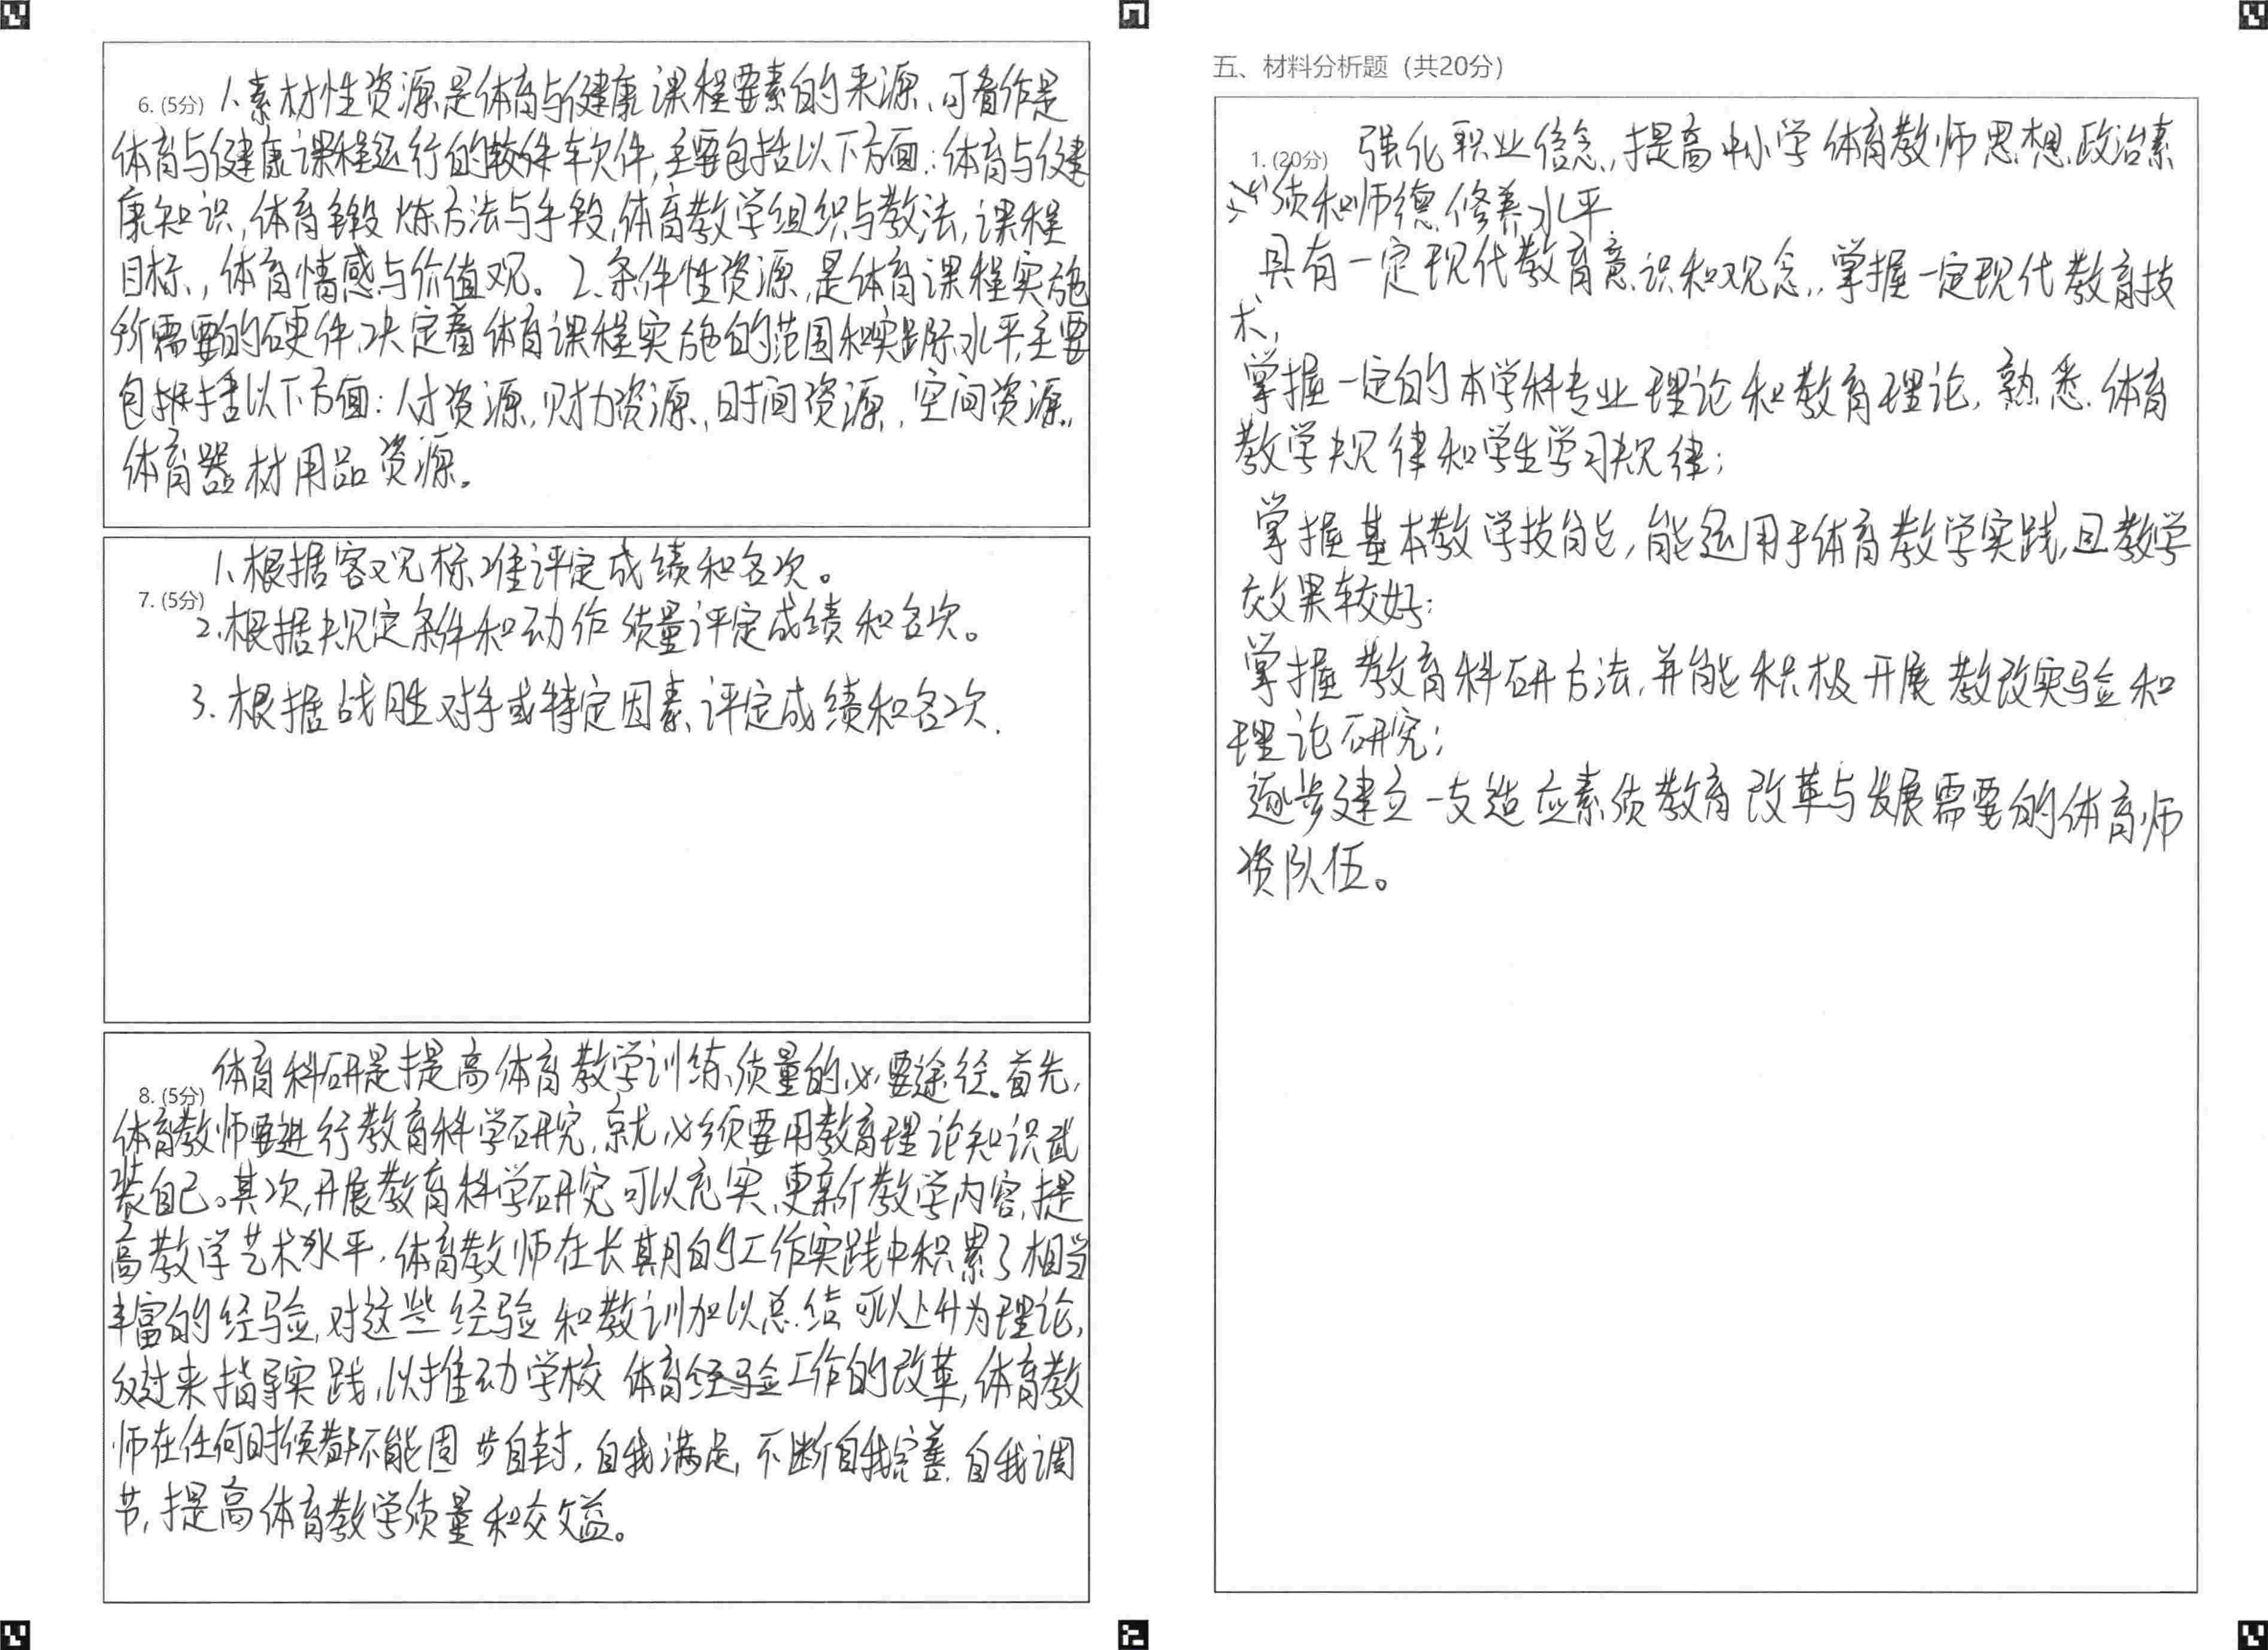 6. (5分) 1、素材性资源是体育与健康课程要素的来源、可看作是
体育与健康课程运行的软件,主要包括以下方面:体育与健
康知识,体育锻炼方法与手段,体育教学组织与教法,课程
目标,体育情感与价值观。2、条件性资源,是体育课程实施
所需要的硬件,决定着体育课程实施的范围和实际水平,主要
包括以下方面:人才资源,财力资源、时间资源,空间资源,
体育器材用品资源。
1、根据客观标准评定成绩和名次。
7. (5分)
2、根据规定条件和动作质量评定成绩和名次。
3、根据战胜对手或特定因素评定成绩和名次.
体育科研是提高体育教学训练质量的必要途径。首先,
8. (5分)
体育教师要进行教育科学研究,就必须要用教育理论知识武
装自己。其次,开展教育科学研究可以充实、更新教学内容,提
高教学艺术水平,体育教师在长期的工作实践中积累了相当
丰富的经验,对这些经验和教训加以总结可以上升为理论,
反过来指导实践,以推动学校体育工作的改革,体育教
师在任何时候都不能固步自封,自我满足,不断自我完善,自我调
节,提高体育教学质量和效益。
五、材料分析题(共20分)
1. (20分) 强化职业信念,提高中小学体育教师思想政治素
质和师德修养水平
具有一定现代教育意识和观念,掌握一定现代教育技
术,
掌握一定的本学科专业理论和教育理论,熟悉体育
教学规律和学生学习规律;
掌握基本教学技能,能运用于体育教学实践,且教学
效果较好;
掌握教育科研方法,并能积极开展教改实验和
理论研究;
逐步建立一支适应素质教育改革与发展需要的体育师
资队伍。